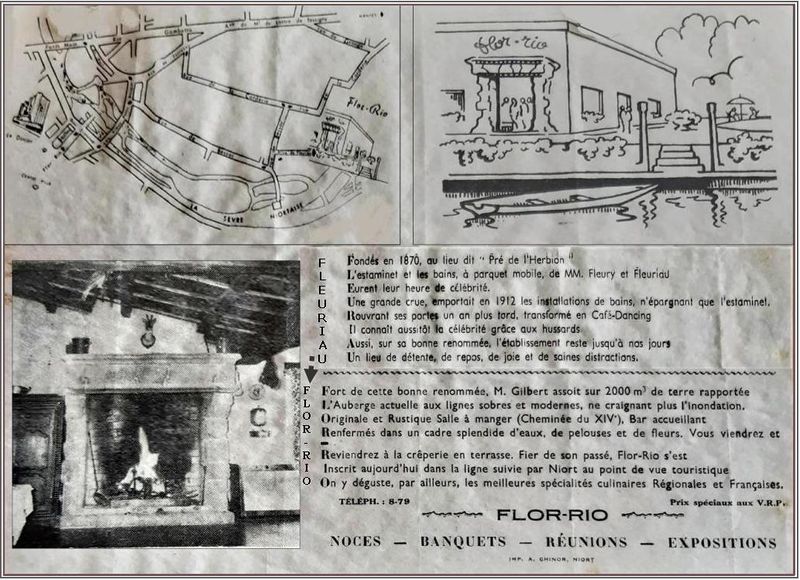 NANTES
Av. du Mal de Lattre de Tassigny
Gambetta
Flor-Rio
Le Donjon
LA SEVRE NIORTAISE
flor-rio
FLEURIAU
Fondés en 1870, au lieu dit " Pré de l'Herbion "
L'estaminet et les bains, à parquet mobile, de MM. Fleury et Fleuriau
Eurent leur heure de célébrité.
Une grande crue, emportait en 1912 les installations de bains, n'épargnant que l'estaminet.
Rouvrant ses portes un an plus tard, transformé en Café-Dancing
Il connaît aussitôt la célébrité grâce aux hussards
Aussi, sur sa bonne renommée, l'établissement reste jusqu'à nos jours
Un lieu de détente, de repos, de joie et de saines distractions.
FLOR-RIO
Fort de cette bonne renommée, M. Gilbert assoit sur 2000 m³ de terre rapportée
L'Auberge actuelle aux lignes sobres et modernes, ne craignant plus l'inondation.
Originale et Rustique Salle à manger (Cheminée du XIVe), Bar accueillant
Renfermés dans un cadre splendide d'eaux, de pelouses et de fleurs. Vous viendrez et
Reviendrez à la crêperie en terrasse. Fier de son passé, Flor-Rio s'est
Inscrit aujourd'hui dans la ligne suivie par Niort au point de vue touristique
On y déguste, par ailleurs, les meilleures spécialités culinaires Régionales et Françaises.
TÉLÉPH. : 8-79
Prix spéciaux aux V.R.P.
FLOR-RIO
NOCES — BANQUETS — RÉUNIONS — EXPOSITIONS
IMP. A. CHINOR, NIORT